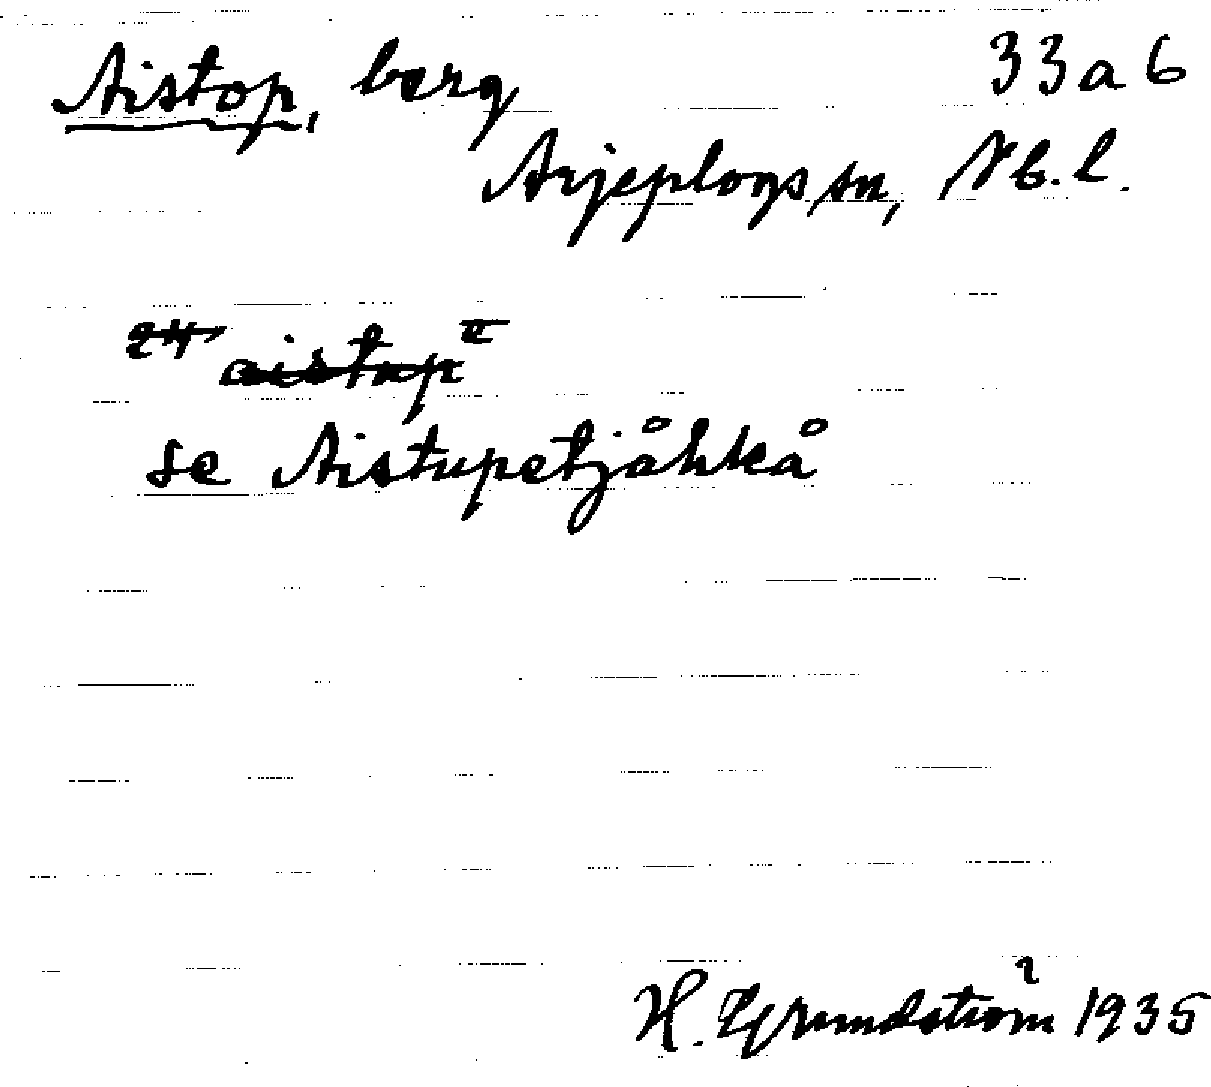 Aistop, berg 33a6
Arjeplogs sn, Nb.l.
24 aistup e
se Aistupetjåhkå
H. Grundström 1935